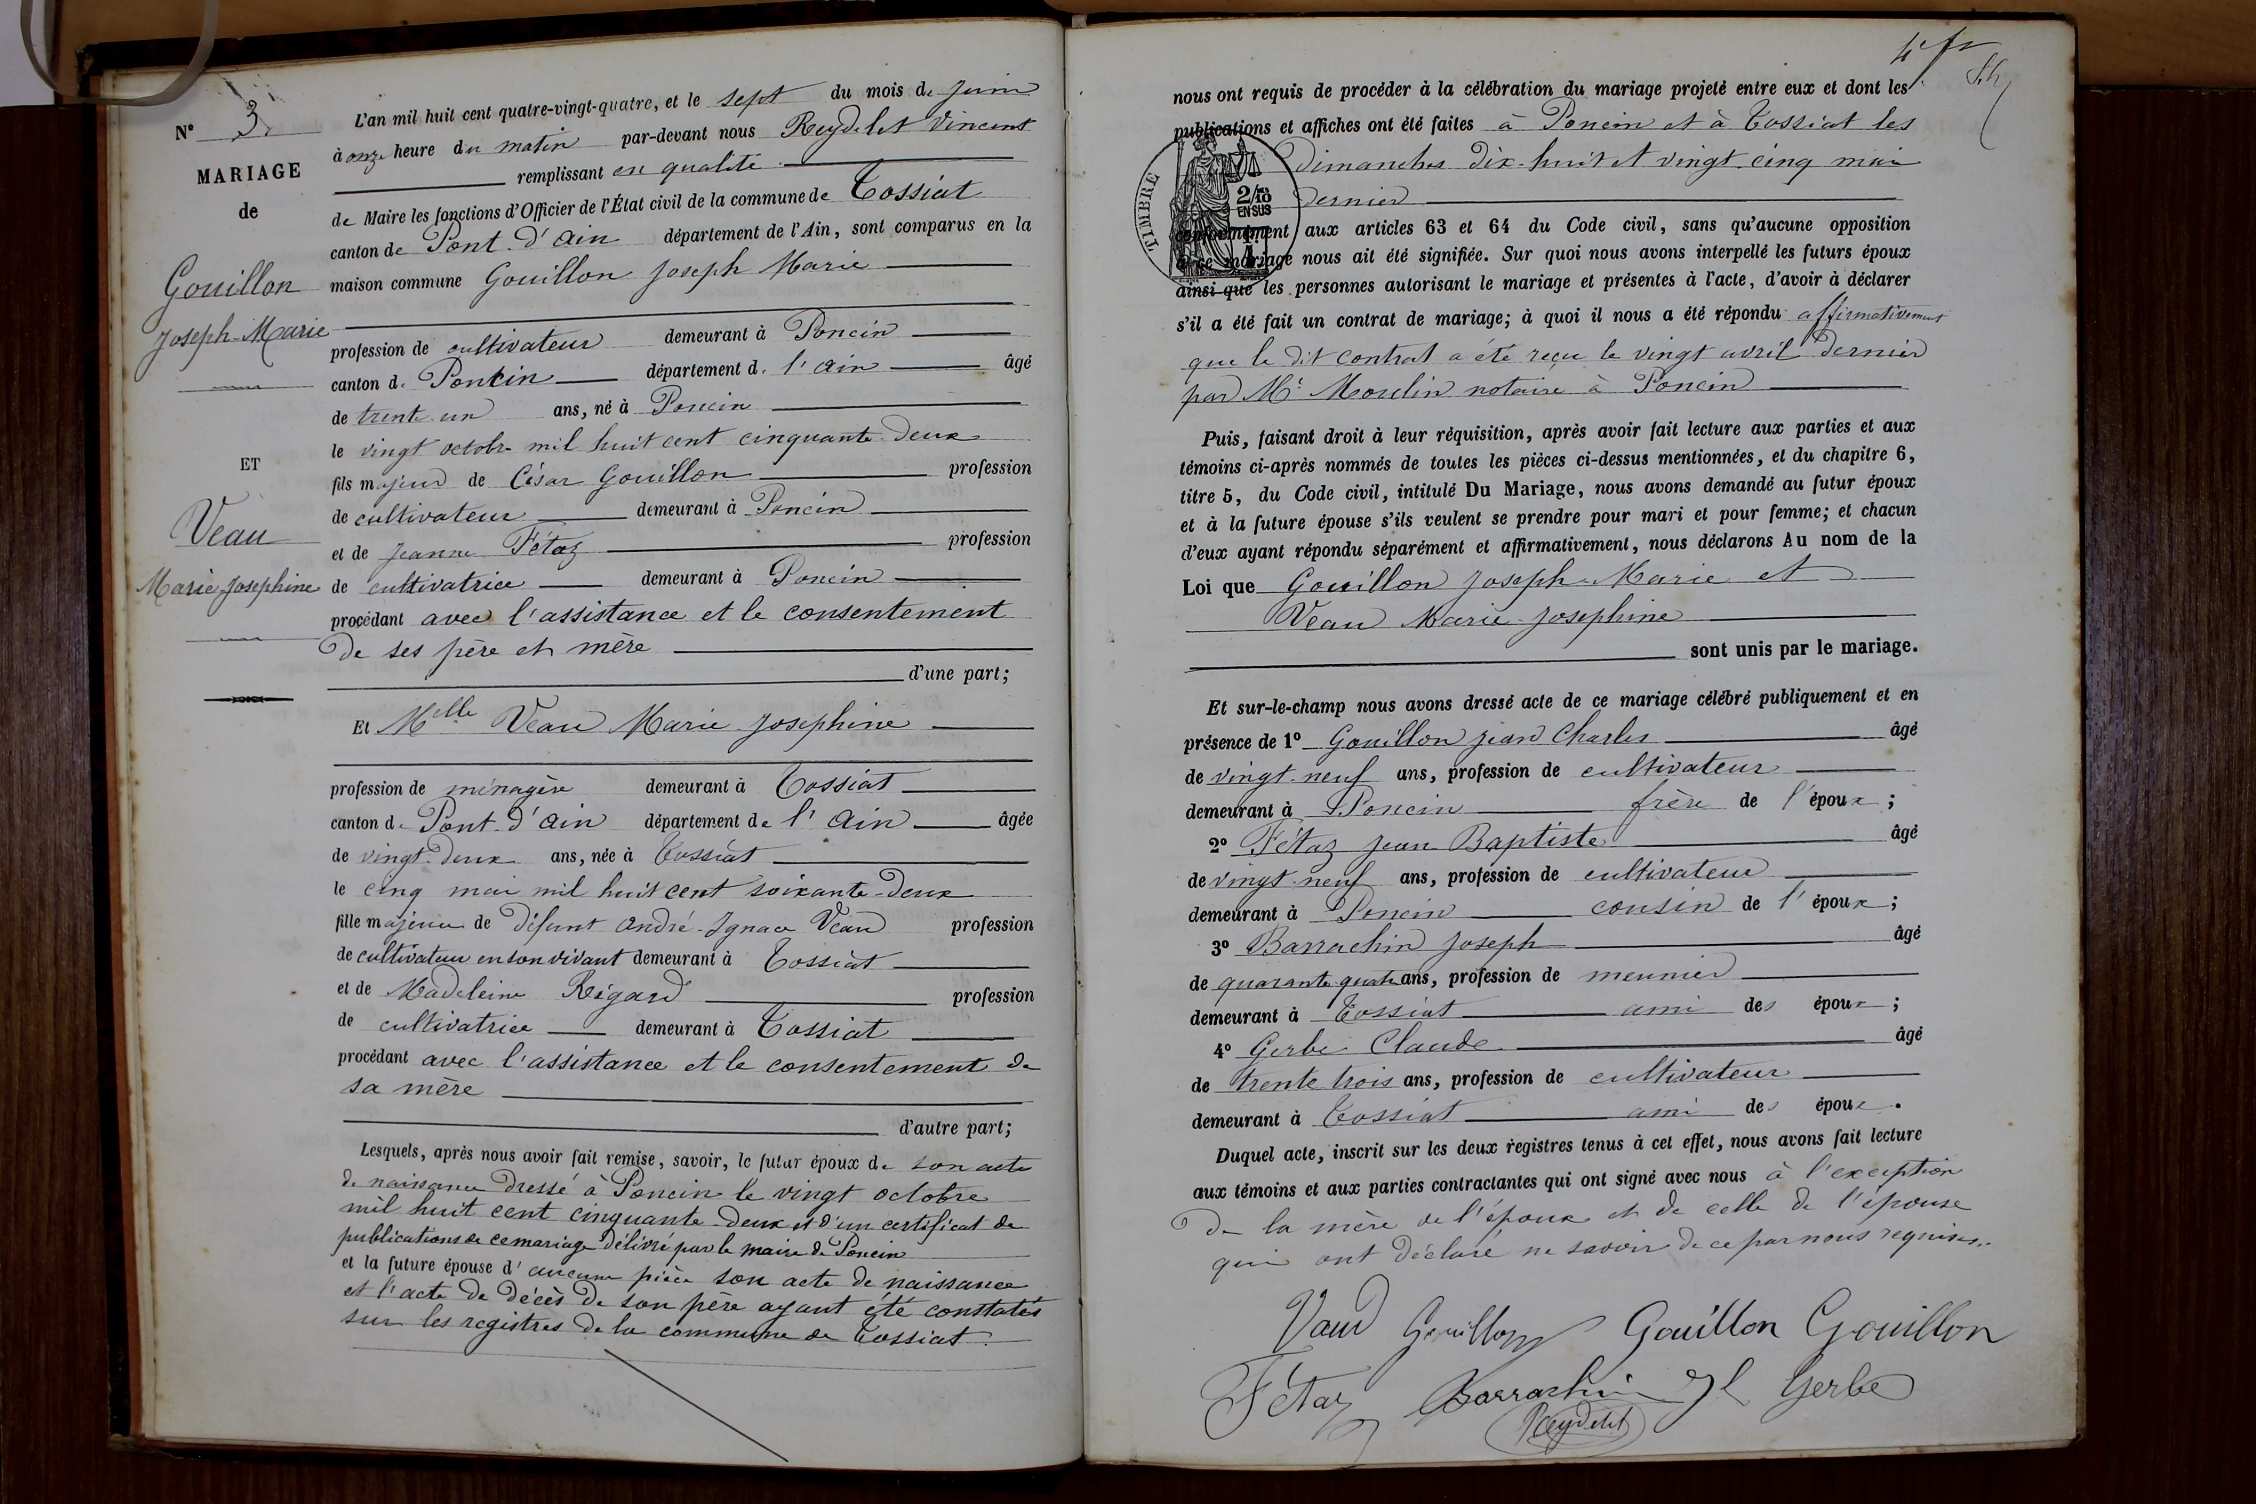 N° 3
MARIAGE
de
Gouillon
Joseph-Marie
ET
Veau
Marie Josephine
L'an mil huit cent quatre-vingt-quatre, et le sept du mois de juin
à onze heure du matin par-devant nous Reydelet Vincent
remplissant en qualité
de Maire les fonctions d'Officier de l'État civil de la commune de Tossiat
canton de Pont d'Ain département de l'Ain, sont comparus en la
maison commune Gouillon Joseph Marie
profession de cultivateur demeurant à Poncin
canton de Poncin département de l'Ain âgé
de trente un ans, né à Poncin
le vingt octobre mil huit cent cinquante-deux
fils majeur de César Gouillon profession
de cultivateur demeurant à Poncin
et de Jeanne Fétaz profession
de cultivatrice demeurant à Poncin
procédant avec l'assistance et le consentement
de ses père et mère
d'une part;
Et Melle Veau Marie Josephine
profession de ménagère demeurant à Tossiat
canton de Pont d'Ain département de l'Ain âgée
de vingt-deux ans, née à Tossiat
le cinq mai mil huit cent soixante-deux
fille majeure de défunt André-Ignace Veau profession
de cultivateur en son vivant demeurant à Tossiat
et de Madeleine Régard profession
de cultivatrice demeurant à Tossiat
procédant avec l'assistance et le consentement de
sa mère
d'autre part;
Lesquels, après nous avoir fait remise, savoir, le futur époux de son acte
de naissance dressé à Poncin le vingt octobre
mil huit cent cinquante-deux et d'un certificat de
publications de ce mariage délivré par le maire de Poncin
et la future épouse d'aucune pièce son acte de naissance
et l'acte de décès de son père ayant été constatés
sur les registres de la commune de Tossiat.
nous ont requis de procéder à la célébration du mariage projeté entre eux et dont les
publications et affiches ont été faites à Poncin et à Tossiat les
dimanches dix-huit et vingt-cinq mai
dernier
TIMBRE
2/10
EN SUS
conformément aux articles 63 et 64 du Code civil, sans qu'aucune opposition
à ce mariage nous ait été signifiée. Sur quoi nous avons interpellé les futurs époux
ainsi que les personnes autorisant le mariage et présentes à l'acte, d'avoir à déclarer
s'il a été fait un contrat de mariage; à quoi il nous a été répondu affirmativement
que le dit contrat a été reçu le vingt avril dernier
par Me Moulin notaire à Poncin
Puis, faisant droit à leur réquisition, après avoir fait lecture aux parties et aux
témoins ci-après nommés de toutes les pièces ci-dessus mentionnées, et du chapitre 6,
titre 5, du Code civil, intitulé Du Mariage, nous avons demandé au futur époux
et à la future épouse s'ils veulent se prendre pour mari et pour femme; et chacun
d'eux ayant répondu séparément et affirmativement, nous déclarons Au nom de la
Loi que Gouillon Joseph-Marie et
Veau Marie-Josephine
sont unis par le mariage.
Et sur-le-champ nous avons dressé acte de ce mariage célébré publiquement et en
présence de 1° Gouillon Jean Charles âgé
de vingt-neuf ans, profession de cultivateur
demeurant à Poncin frère de l'époux;
2° Fétaz Jean Baptiste âgé
de vingt-neuf ans, profession de cultivateur
demeurant à Poncin cousin de l'époux;
3° Barrachin Joseph âgé
de quarante quatre ans, profession de meunier
demeurant à Tossiat ami des époux;
4° Gerbe Claude âgé
de trente trois ans, profession de cultivateur
demeurant à Tossiat ami des époux.
Duquel acte, inscrit sur les deux registres tenus à cet effet, nous avons fait lecture
aux témoins et aux parties contractantes qui ont signé avec nous à l'exception
de la mère de l'époux et de celle de l'épouse
qui ont déclaré ne savoir de ce par nous requises.
Gouillon Gouillon Gouillon
Fétaz Barrachin Gerbe
Reydelet